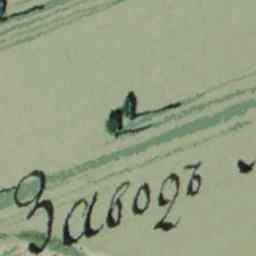 Заводъ